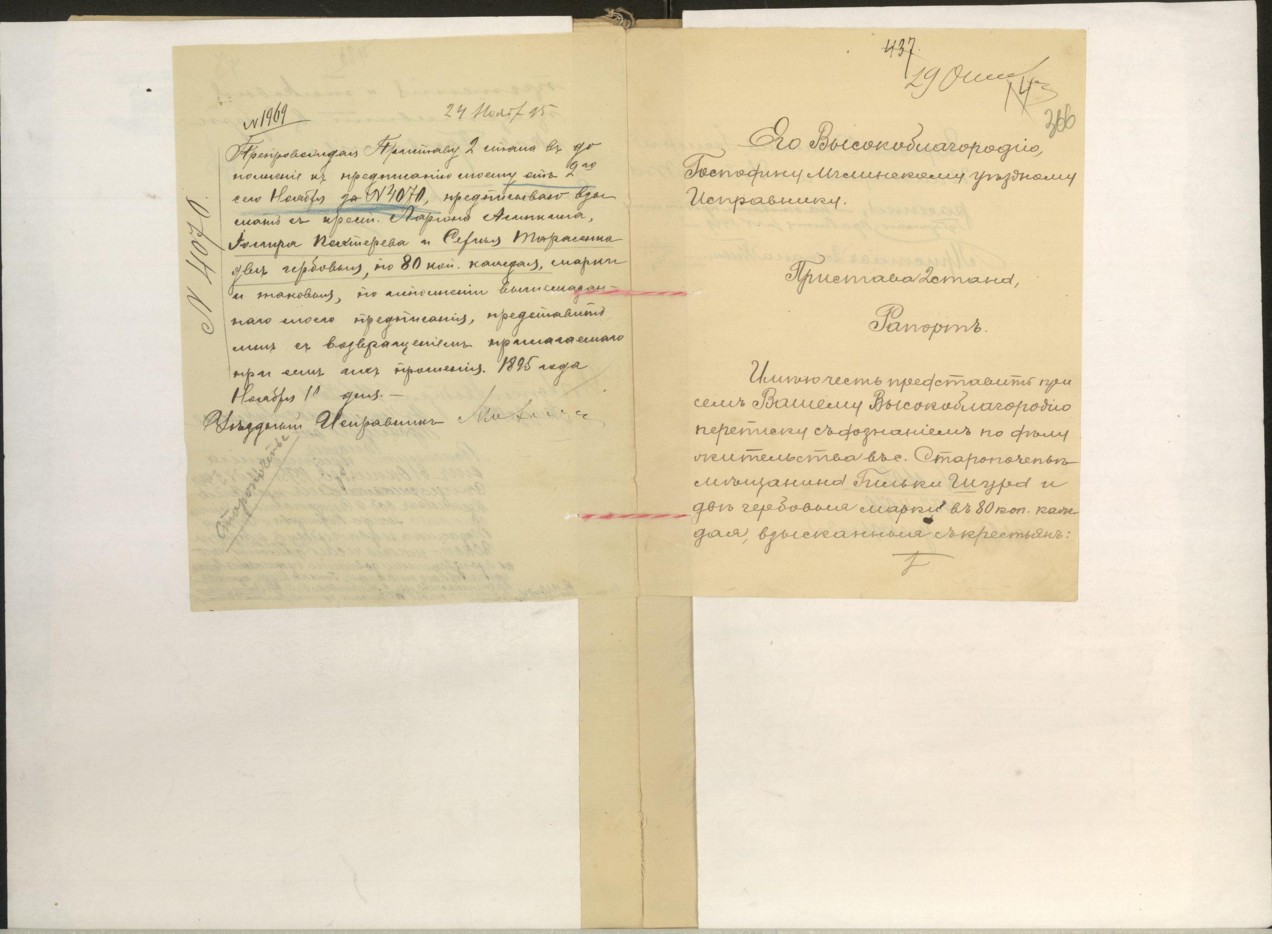 № 1969
24 Нояб 95
№ 4070.
Препровождая Приставу 2 стана въ до
полненіе къ предписанію моему отъ 2го
сего Ноября за № 4070, предписываю взы
скать съ крест. Ларіона
и Сергѣя Тарасенка
двѣ гербовыя, по 80 коп. каждая, марки
и таковыя, по исполненіи вышесказан-
наго моего предписанія, представить
мнѣ съ возвращеніемъ прилагаемаго
при семъ ихъ прошенія. 1895 года
Ноября 11 дня. —
Уѣздный Исправникъ
437.
29
143
366
Его Высокоблагородію,
Господину Мглинскому уѣздному
Исправнику.
Пристава 2 стана,
Рапортъ.
Имѣю честь представить при
семъ Вашему Высокоблагородію
переписку съ дознаніемъ по дѣлу
жительства въ с. Старопочепьѣ
мѣщанина Гильки Шура и
двѣ гербовыя марки въ 80 коп. каж
дая, взысканныя съ крестьянъ: